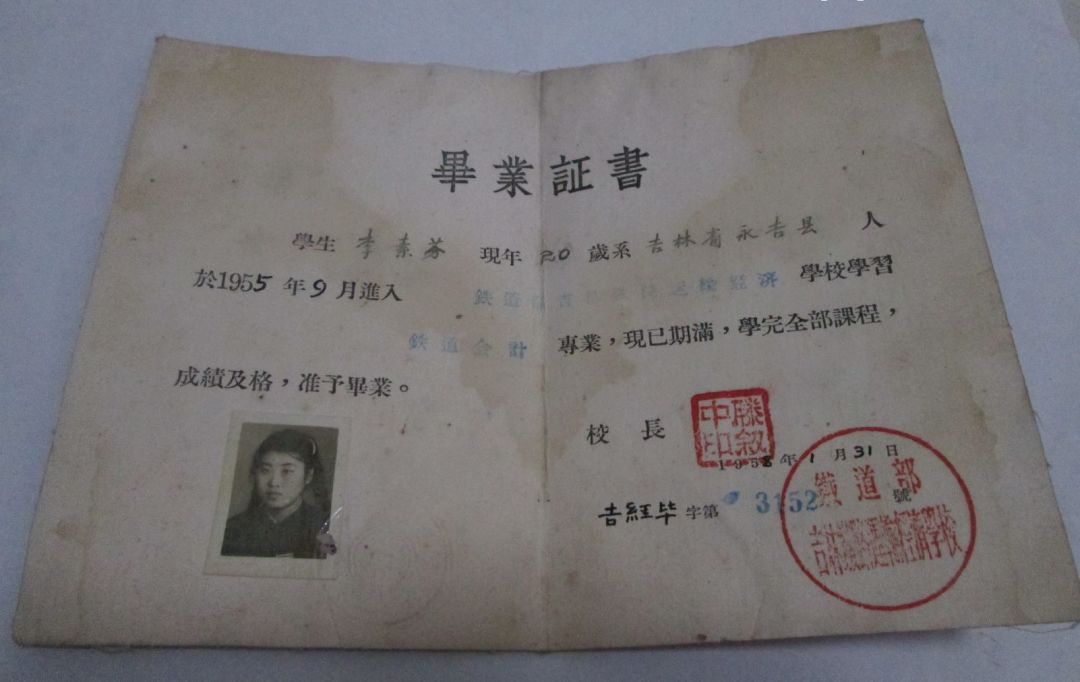 畢業証書
學生 李素芬 現年 20 歲系 吉林省永吉县 人
於1955年9月進入 鉄道部吉林鉄路运输经济 學校學習
鉄道会計 專業，現已期滿，學完全部課程，
成績及格，准予畢業。
校長
滕叙中印
1958年1月31日
吉經毕字第 3152 號
鐵道部
吉林鐵路運輸經濟學校